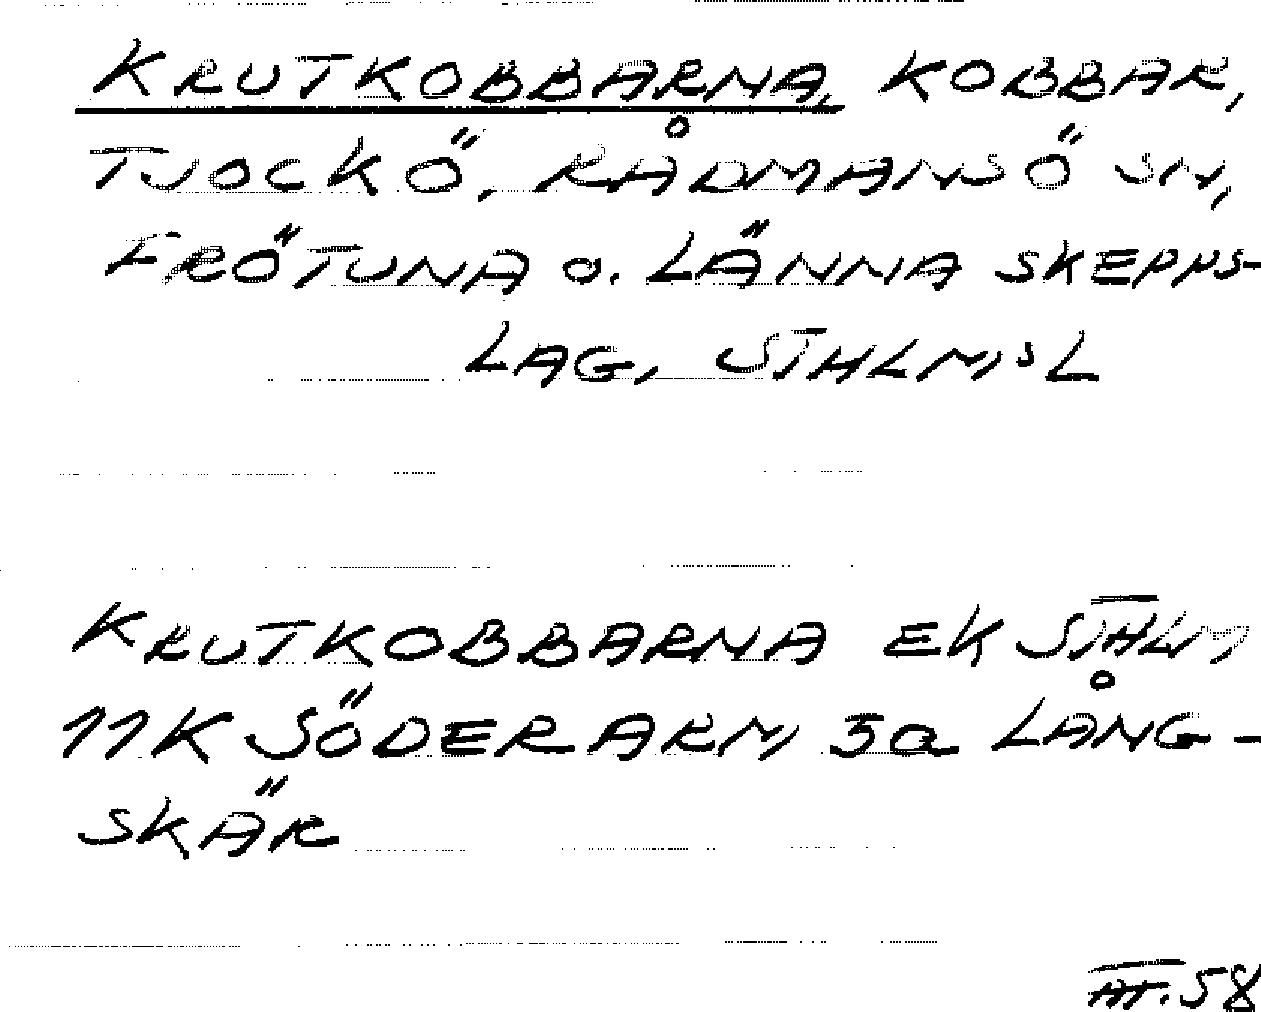 KRUTKOBBARNA, KOBBAR,
TJOCKÖ, RÅDMANSÖ SN,
FRÖTUNA o. LÄNNA SKEPPS-
LAG, STHLM,S L
KRUTKOBBARNA EK STHLM
11K SÖDERARM 5a LÅNG-
SKÄR
58